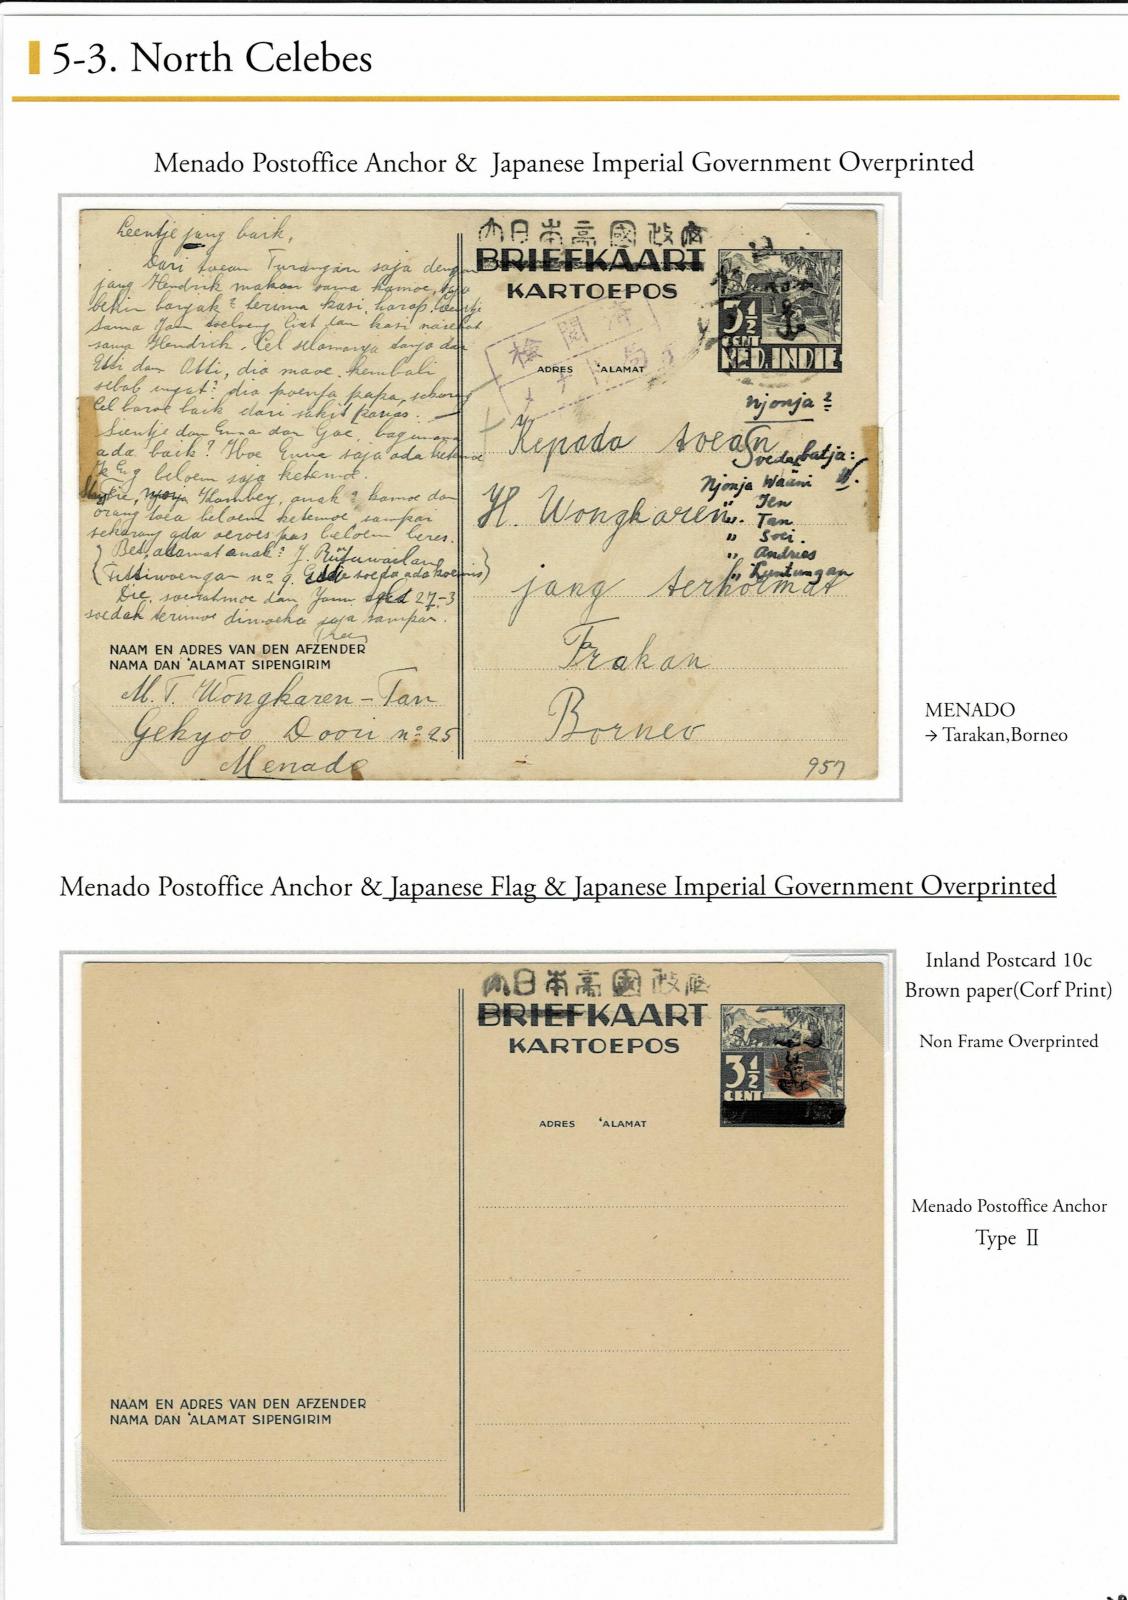 5-3. North Celebes
Menado Postoffice Anchor & Japanese Imperial Government Overprinted
Leentje jang baik,
Dari toean Turangan saja dengar
jang Hendrik makan sama kamoe,
bikin banjak? terima kasi, harap Leentje
sama Jan toeloeng liat dan kasi nasehat
sama Hendrik. Cel selamanja tanja dan
Etti dan Otti, dia maoe kembali
sebab ingat? dia poenja papa, sekarang
Cel baroe baik dari sakit
Sientje dan Enna dan Goe, bagimana
ada baik? Hoe Enna saja ada ketemoe
beloem saja ketemoe.
anak? kamoe dan
orang toea beloem ketemoe sampai
sekarang ada oeroes pas beloem beres.
alamat anak? J.
no 9. soeda ada
Die, soeratmoe dan Jann 27-3
soedah terima saja sampai.
NAAM EN ADRES VAN DEN AFZENDER
NAMA DAN 'ALAMAT SIPENGIRIM
M. T. Wongkaren - Tan
Gekyoo Doori no 25
Menado
大日本帝國政府
BRIEFKAART
KARTOEPOS
3½
CENT
NED. INDIE
検閲済
ADRES 'ALAMAT
Njonja?
Kepada toean
Soeda batja:
Njonja Waäni
" Jen
H. Wongkaren.
" Tan
" Soei.
" Andries
" Luntungan
jang terhormat
Trakan
Borneo
957
MENADO
→ Tarakan,Borneo
Menado Postoffice Anchor & Japanese Flag & Japanese Imperial Government Overprinted
大日本帝國政府
BRIEFKAART
KARTOEPOS
3½
CENT
ADRES 'ALAMAT
NAAM EN ADRES VAN DEN AFZENDER
NAMA DAN 'ALAMAT SIPENGIRIM
Inland Postcard 10c
Brown paper(Corf Print)
Non Frame Overprinted
Menado Postoffice Anchor
Type Ⅱ